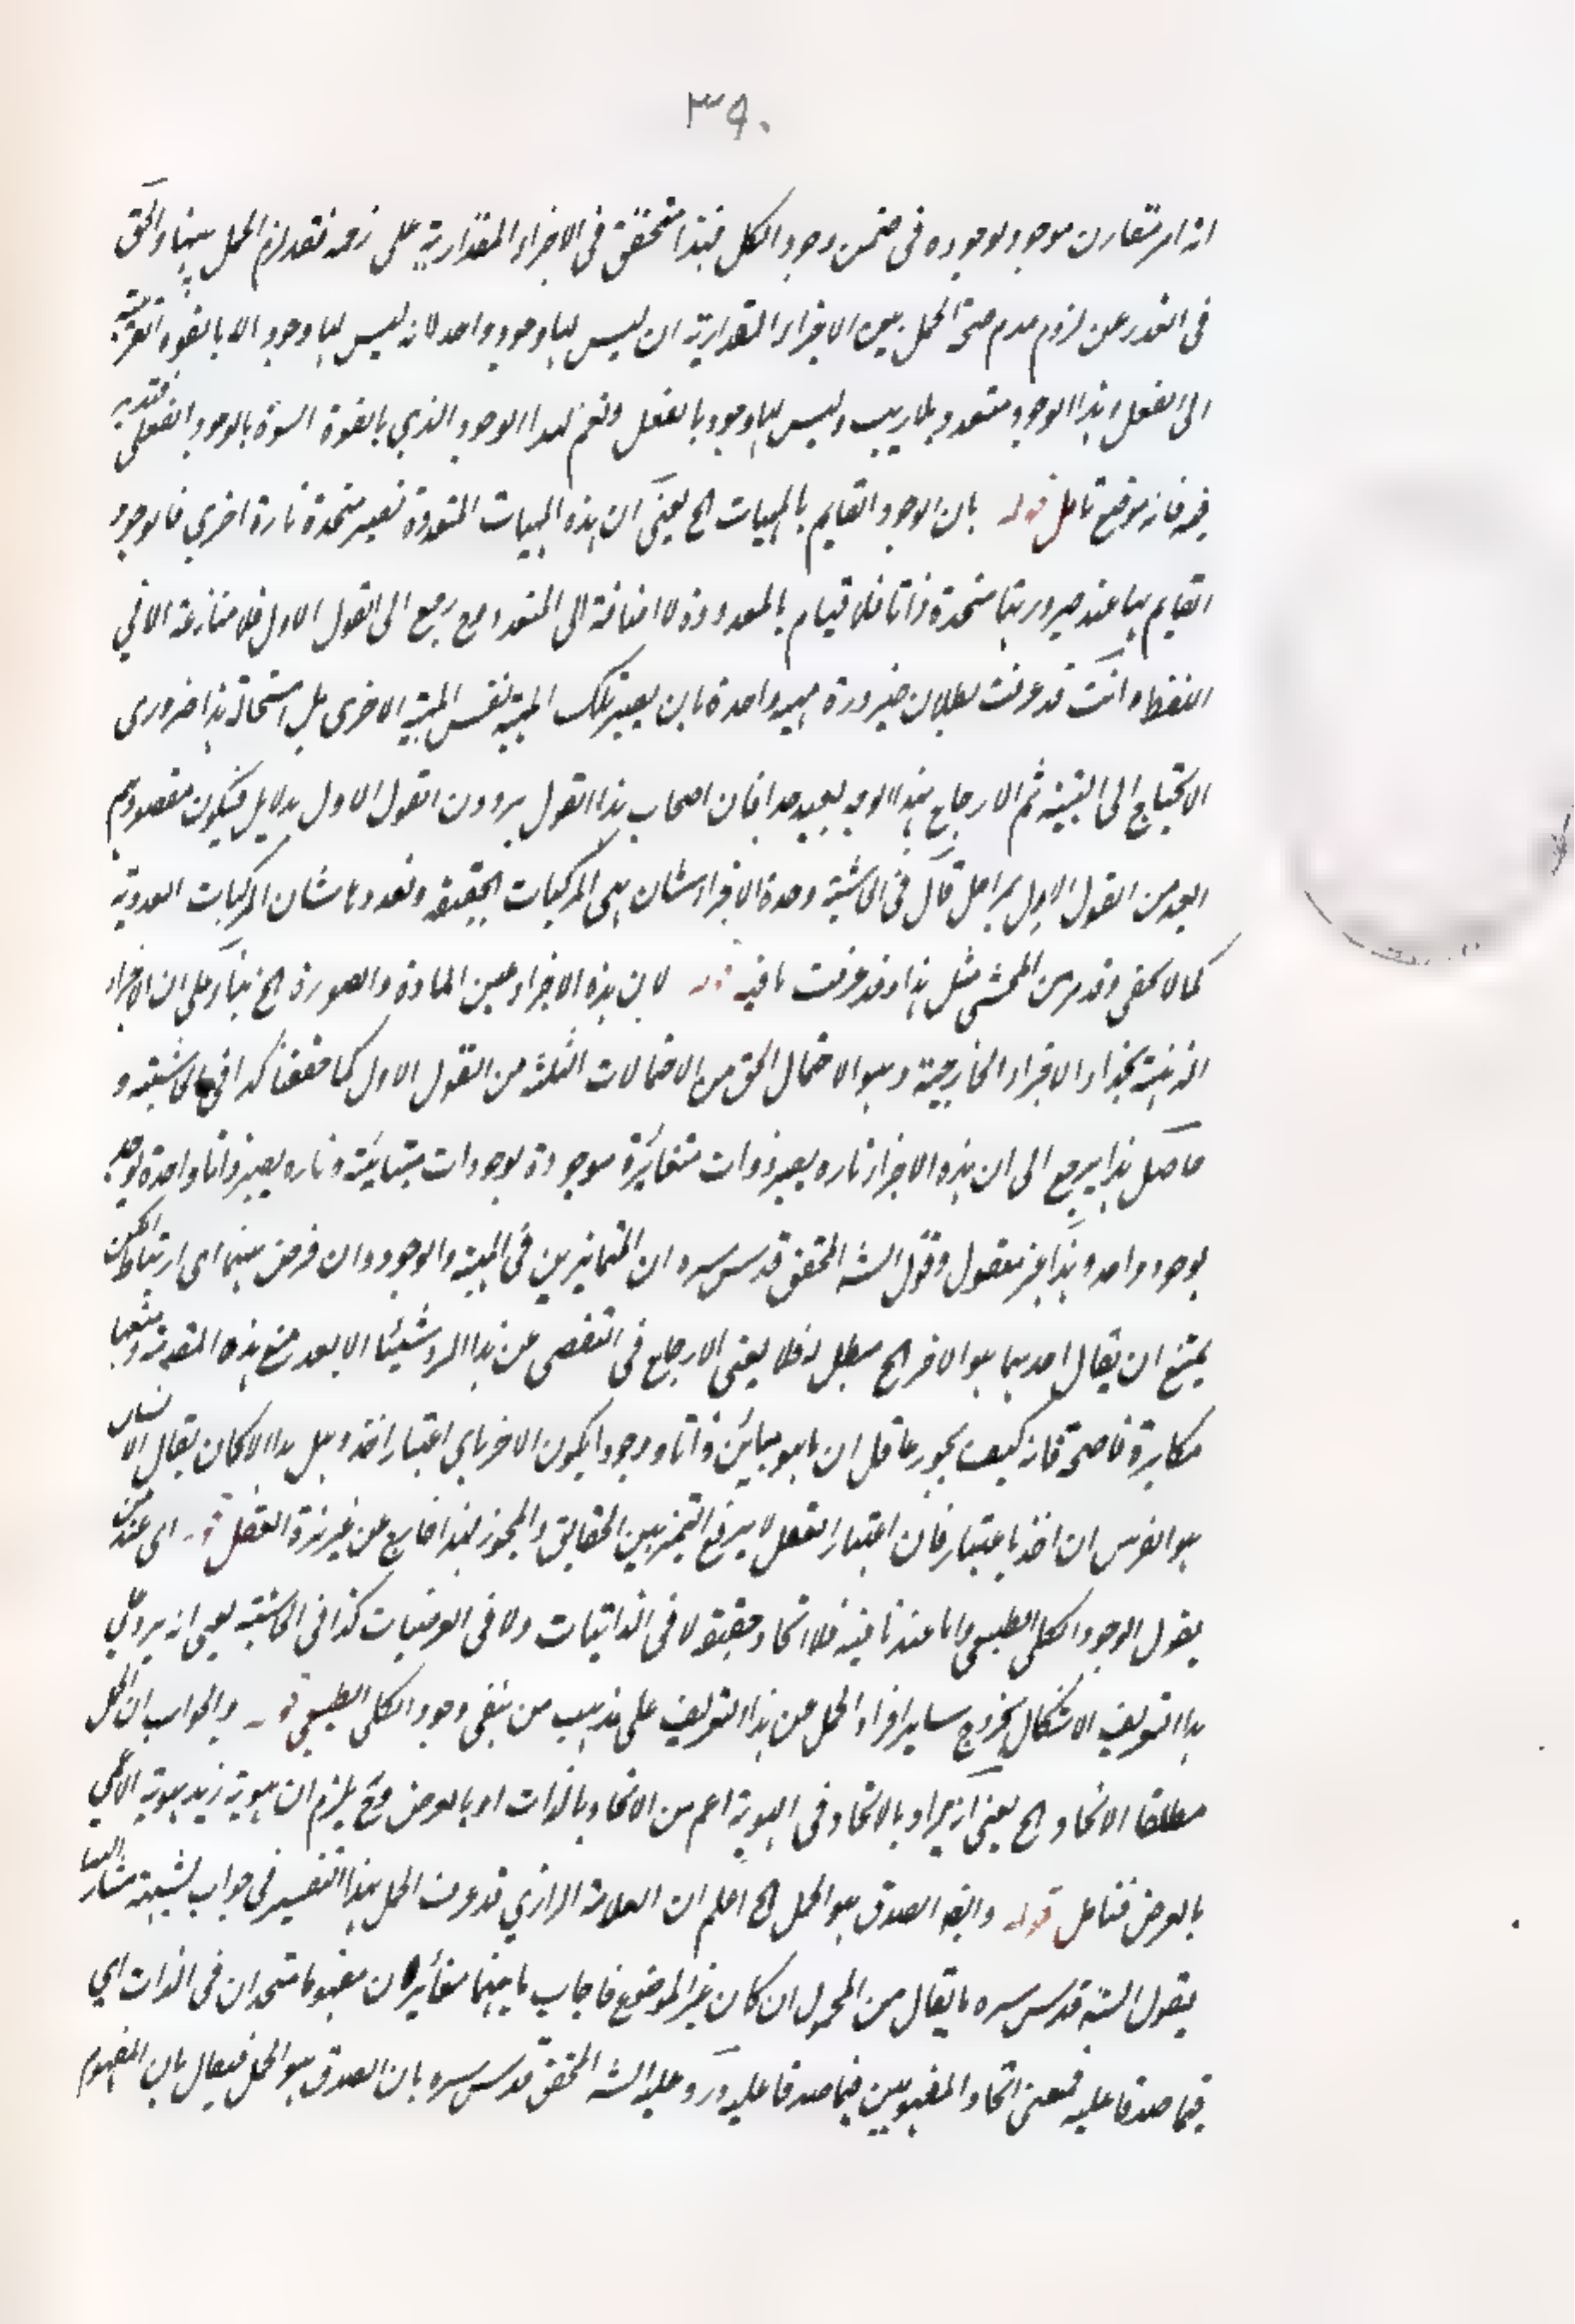 ٣٩٠
انه امر مقارن موجود لوجوده فى ضمن وجود الكل فهذا متحقق فى الاجزاء المقدارية على زعمه فقد لزم الحمل بينها والحق
فى العذر عن لزوم عدم صحة الحمل بين الاجزاء المقدارية ان ليس لها وجود واحد لانه ليس لها وجود الا بالقوة القريبة
الى الفعل وهذا الوجود متعدد بلا ريب وليس لها وجود بالفعل ونعم لهذا الوجود الذي بالقوة بالوجود الفعلى فتدبر
فيه فانه موضع تامل قوله بان الوجود القايم بالمهيات الخ يعنى ان هذه المهيات المتعددة تصير متحدة تارة اخرى فالوجود
القايم بها عند صيرورتها متحدة ذاتا فلا قيام بالمتعدد ولا اضافة الى المتعدد مع رجع الى القول الاول فلا منازعة الا في
اللفظ وانت قد عرفت بطلان صيرورة مهية واحدة بان يصير تلك المهية نفس المهية الاخرى بل استحالة هذا ضرورى
لا يحتاج الى البينة ثم الارجاع بهذا الوجه بعيد جدا فان اصحاب هذا القول يردون القول الاول بدلايل فيكون مقصودهم
ابعد من القول الاول بمراحل قال فى الحاشية وحدة الاجزاء شان هى المركبات الحقيقية وتعددها شان المركبات العددية
كما لا يخفى وقد مر من المحشى مثل هذا وقد عرفت ما فيه قوله لان هذه الاجزاء عين المادة والصورة الخ بناء على ان الاجزاء
الذهنية بحذاء الاجزاء الخارجية وهو الاحتمال الحق من الاحتمالات الثلثة من القول الاول كما حققنا كذا فى الحاشية و
حاصل هذا يرجع الى ان هذه الاجزاء تاره يصير ذوات متغائرة موجودة بوجودات متباينة وتاره يصير ذاتا واحدة موجودة
بوجود واحد وهذا غير معقول وقول السيد المحقق قدس سره ان المتمايزين فى المهية والوجود وان فرض بينهما اى ارتباط امكن
يمتنع ان يقال احدهما هو الاخر الخ مبطل له فلا يغنى الارجاع فى التفصى عن هذا الرد شيئا الا بعد منع هذه المقدمة ومنعها
مكابرة فاضحة فانه كيف يجوز عاقل ان ما هو مبائن ذاتا ووجودا يكون الاخر باى اعتبار اخذ وهل هذا الا كان يقال الانسان
هو الفرس ان اخذ باعتبار فان اعتبار العقل لا يرفع التميز بين الحقايق والمجوز لهذا خارج عن غريزة العقل قوله اى عند من
يقول بوجود الكلى الطبيعى واما عند نافيه فلا اتحاد حقيقة لا فى الذاتيات ولا فى العرضيات كذا فى الحاشية يعنى انه يرد على
هذا التعريف الاشكال بخروج ساير افراد الحمل عن هذا التعريف على مذهب من ينفى وجود الكلى الطبيعى قوله والجواب ان الحمل
مطلقا الاتحاد الخ يعنى انه يراد بالاتحاد فى الهوية اعم من الاتحاد بالذات او بالعرض وح يلزم ان هوية زيد هوية الاعمى
بالعرض فتامل قوله وايضا الصدق هو الحمل الخ اعلم ان العلامة الرازي قد عرف الحمل بهذا التفسير فى جواب لشبهة مشار اليها
بقول السيد قدس سره ما يقال من المحمول ان كان غير الموضوع فاجاب بانهما متغائران مفهوما متحدان فى الذات اى
فيما صدقا عليه فمعنى اتحاد المفهومين فيما صدقا عليه ورد عليه السيد المحقق قدس سره بان الصدق هو الحمل فيقال بان المفهوم